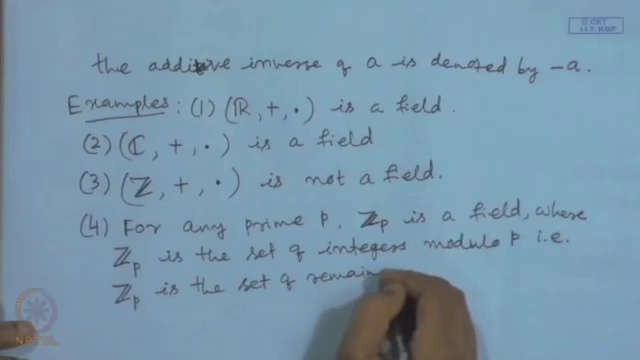 © CET
I.I.T. KGP
the additive inverse of a is denoted by -a.
Examples: (1) (ℝ, +, ·) is a field.
(2) (ℂ, +, ·) is a field
(3) (ℤ, +, ·) is not a field.
(4) For any prime p, ℤp is a field, where
ℤp is the set of integers modulo p i.e.
ℤp is the set of remain
NPTEL